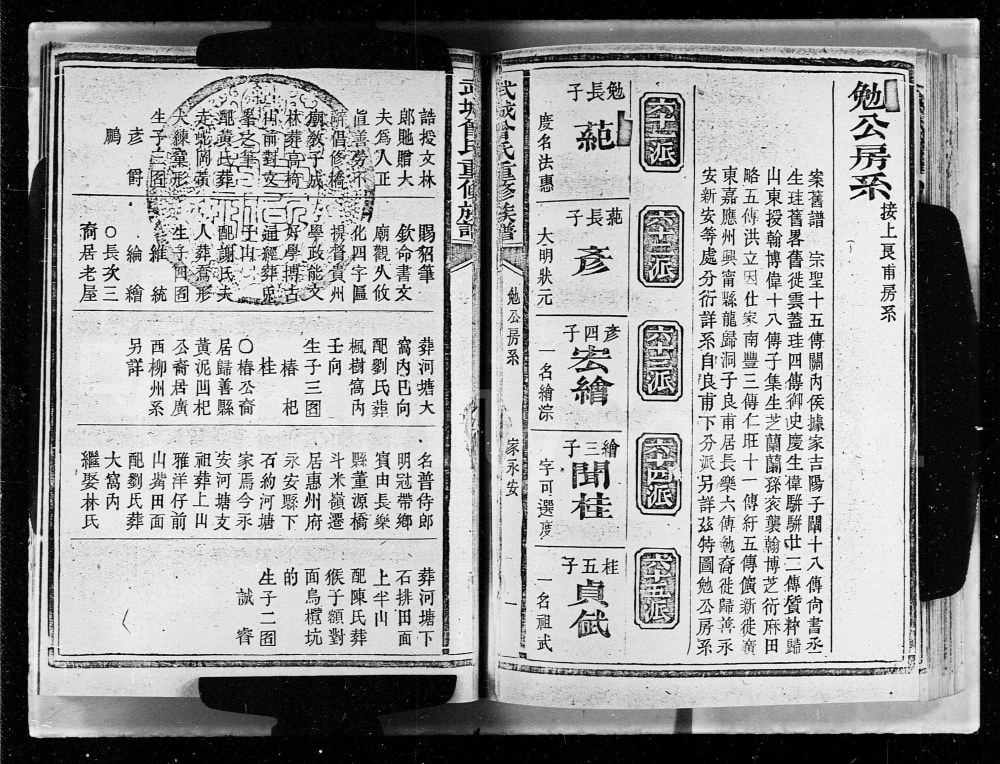 勉公房系
接上良甫房系
案舊譜 宗聖十五傳關內侯據家吉陽子闡十八傳尚書丞
生珪舊畧舊徙雲蓋珪四傳御史慶生偉駢駢廿二傳質粹歸
山東授翰博偉十八傳子集生芝蘭蘭孫衮襲翰博芝衍麻田
略五傳洪立因仕家南豐三傳仁旺十一傳新五傳儐新徙廣
東嘉應州興甯縣龍歸洞子良甫居長樂六傳勉裔徙歸善永
安新安等處分衍詳系自良甫下分派另詳茲特圖勉公房系
六十一派
六十二派
六十三派
六十四派
六十五派
勉長子
菢
慶名法惠
長子
彥
大明狀元
彥四子
宏繪
一名繪淙
繪三子
聞桂
字可選度
桂五子
貞斌
一名祖武
武城曾氏重修族譜
勉公房系
家永安
一
武城曾氏重修族譜
誥授文林
郎貤贈大
夫為人正
眞善勞不
辭倡修橋
廟教子成
林葬高椅
彥爵
鵬
賜貂筆
欽命書文
廟觀八攸
化四字匾
視督貴州
學政能文
好學博古
通經葬
子山
配謝氏夫
人葬喬形
生子四圖
維統
綸繪
〇長次三
裔居老屋
葬河塘大
窩內巳向
配劉氏葬
楓樹窩內
壬向
生子三圖
椿杞
桂
〇椿公裔
居歸善縣
黃泥凹杞
公裔居廣
西柳州系
另詳
名普侍郎
明冠帶鄉
賓由長樂
縣董源橋
斗米嶺遷
居惠州府
永安縣下
石約河塘
家焉今永
安河塘支
祖葬上山
雅洋仔前
山崗田面
配劉氏葬
大窩內
繼娶林氏
葬河塘下
石排田面
上半山
配陳氏葬
猴子額對
面烏欖坑
的
生子二圖
誠睿